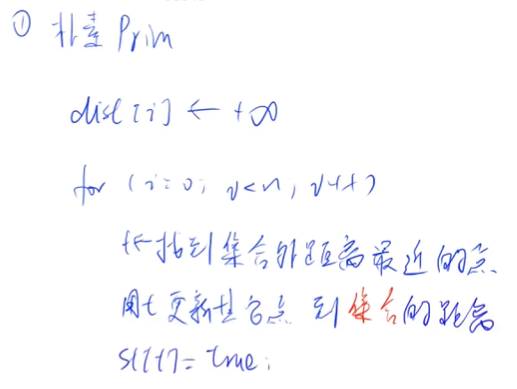 ① 朴素 Prim
dist[i] ← +∞
for (i=0; i<n; i++)
t←找到集合外距离最近的点
用t更新其它点 到集合的距离
st[t]=true;